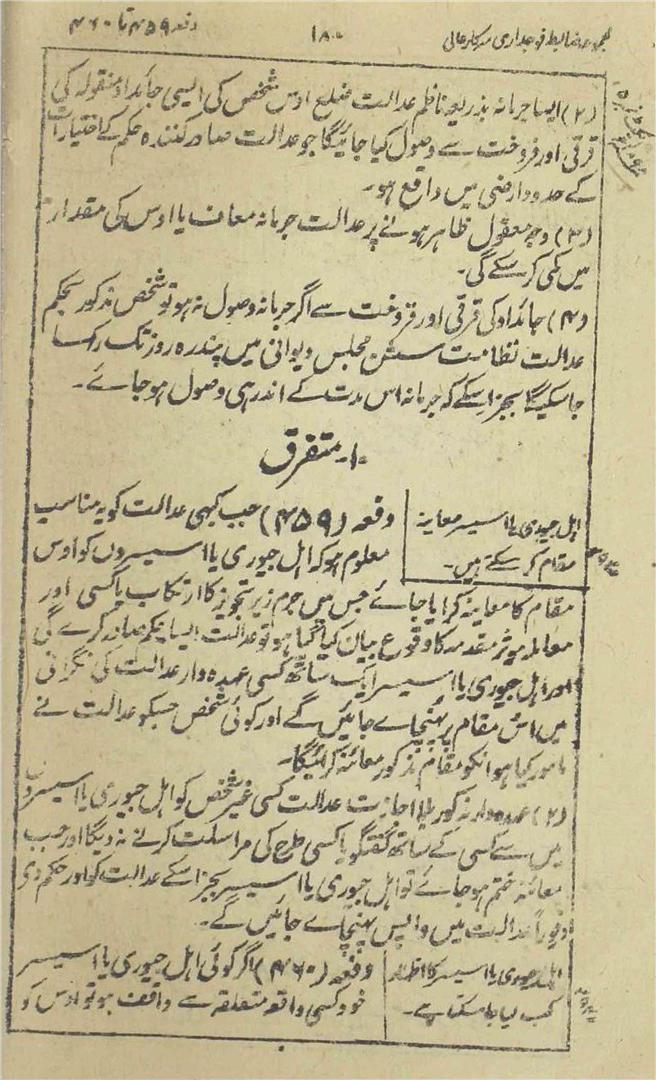 مجموعہ ضابطہ فوجداری سرکار عالی
۱۸۰
دفعہ ۴۵۹ تا ۴۶۰
(۲) ایسا جرمانہ بذریعہ ناظم عدالت ضلع اوس شخص کی ایسی جائداد منقولہ کی
قرقی اور فروخت سے وصول کیا جائیگا جو عدالت صادر کنندہ حکم کے اختیارات
کے حدود ارضی میں واقع ہو۔
(۳) وجہ معقول ظاہر ہونے پر عدالت جرمانہ معاف یا اوس کی مقدار
میں کمی کر سکے گی۔
(۴) جائداد کی قرقی اور فروخت سے اگر جرمانہ وصول نہ ہو تو شخص مذکور بحکم
عدالت نظامت سشن محبس دیوانی میں پندرہ روز تک رکھا
جا سکیگا بجز اسکے کہ جرمانہ اس مدت کے اندر ہی وصول ہو جائے۔
۱۰۔ متفرق
اہل جیوری یا اسیسر معاینہ
مقام کر سکتے ہیں۔
دفعہ (۴۵۹) جب کبھی عدالت کو یہ مناسب
معلوم ہو کہ اہل جیوری یا اسیسروں کو اوس
مقام کا معاینہ کرایا جائے جس میں جرم زیر تجویز کا ارتکاب یا کسی اور
معاملہ موثر مقدمہ کا وقوع بیان کیا گیا ہو تو عدالت ایسا حکم صادر کرے گی
اور اہل جیوری یا اسیسر ایک ساتھ کسی عہدہ دار عدالت کی نگرانی
میں اس مقام پر پہنچاے جائیں گے اور کوئی شخص جسکو عدالت نے
مامور کیا ہو انکو مقام مذکور معائنہ کرائیگا۔
(۲) عہدہ دار مذکور بلا اجازت عدالت کسی غیر شخص کو اہل جیوری یا اسیسروں
میں سے کسی کے ساتھ گفتگو یا کسی طرح کی مراسلت کرنے نہ دیگا اور جب
معائنہ ختم ہو جائے تو اہل جیوری یا اسیسر بجز اسکے عدالت کو اور حکم دی
فوراً عدالت میں واپس پہنچاے جائیں گے۔
اہل جیوری یا اسیسر کا اظہار
کب لیا جا سکتا ہے۔
دفعہ (۴۶۰) اگر کوئی اہل جیوری یا اسیسر
خود کسی واقعہ متعلقہ سے واقف ہو تو اوس کو